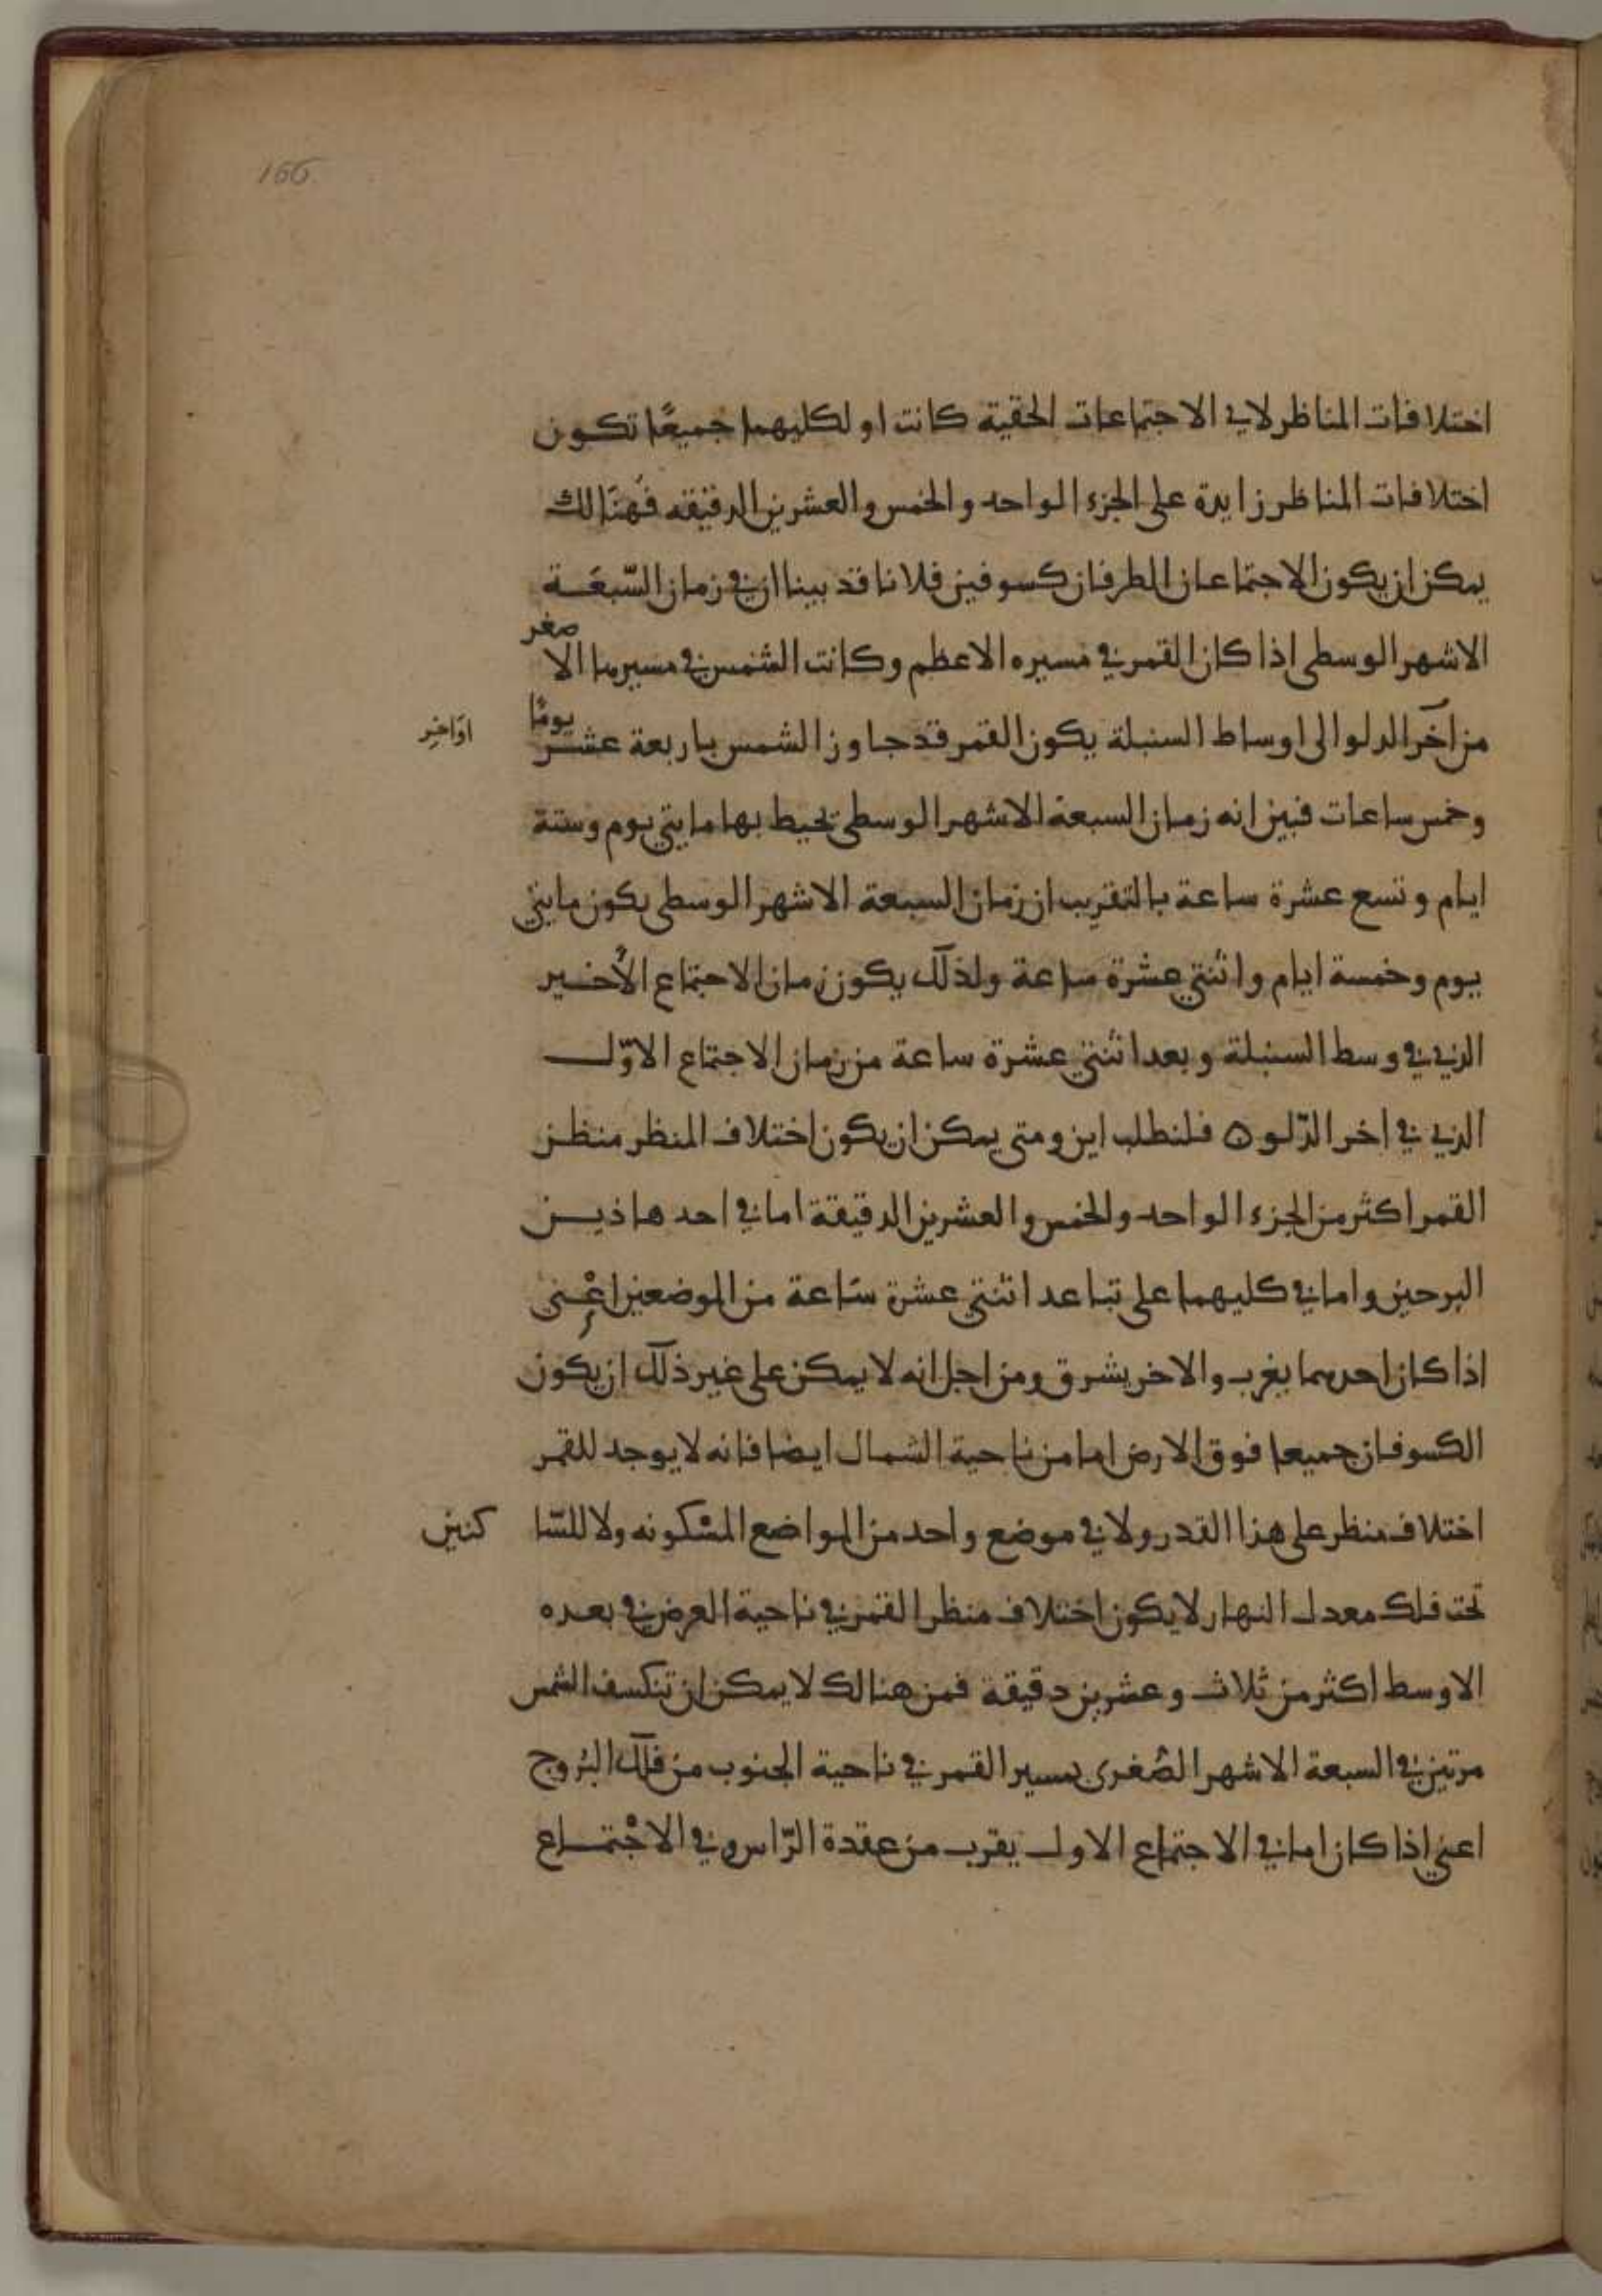 166
اختلافات المناظر لا في الاجتماعات الحقية كانت او لكليهما جميعًا تكون
اختلافات المناظر زايدة على الجزء الواحد والخمس والعشرين الدقيقه فهنالك
يمكن ان يكون الاجتماعان الطرفان كسوفين فلانا قد بينا ان في زمان السّبعَة
الاشهر الوسطى اذا كان القمر في مسيره الاعظم وكانت الشمس في مسيرها الاصغر
من آخر الدلو الى اوساط السنبلة يكون القمر قد جاوز الشمس باربعة عشر يومًا
اوَاخِر
وخمس ساعات فبين انه زمان السبعة الاشهر الوسطى يحيط بها مايتي يوم وستة
ايام وتسع عشرة ساعة بالتقريب ان زمان السبعة الاشهر الوسطى يكون مايتي
يوم وخمسة ايام واثنتي عشرة ساعة ولذلك يكون زمان الاجتماع الأخير
الذي في وسط السنبلة وبعد اثنتي عشرة ساعة من زمان الاجتماع الاوّل
الذي في اخر الدّلو ه فلنطلب اين ومتى يمكن ان يكون اختلاف المنظر منظر
القمر اكثر من الجزء الواحد والخمس والعشرين الدقيقة اما في احد هاذين
البرجين واما في كليهما على تباعد اثنتي عشرة سَاعة من الموضعين اعْني
اذا كان احدهما يغرب والاخر يشرق ومن اجل انه لا يمكن على غير ذلك ان يكون
الكسوفان جميعا فوق الارض اما من ناحية الشمال ايضا فانه لا يوجد للقمر
اختلاف منظر على هذا القدر ولا في موضع واحد من المواضع المسْكونه ولا للسّا
كنين
تحت فلك معدل النهار لا يكون اختلاف منظر القمر في ناحية العرض في بعده
الاوسط اكثر من ثلاث وعشرين دقيقة فمن هنالك لا يمكن ان تنكسف الشمس
مرتين في السبعة الاشهر الصُغرى بمسير القمر في ناحية الجنوب من فلك البُروج
اعني اذا كان اما في الاجتماع الاول يقرب من عقدة الرّاس وفي الاجْتماع